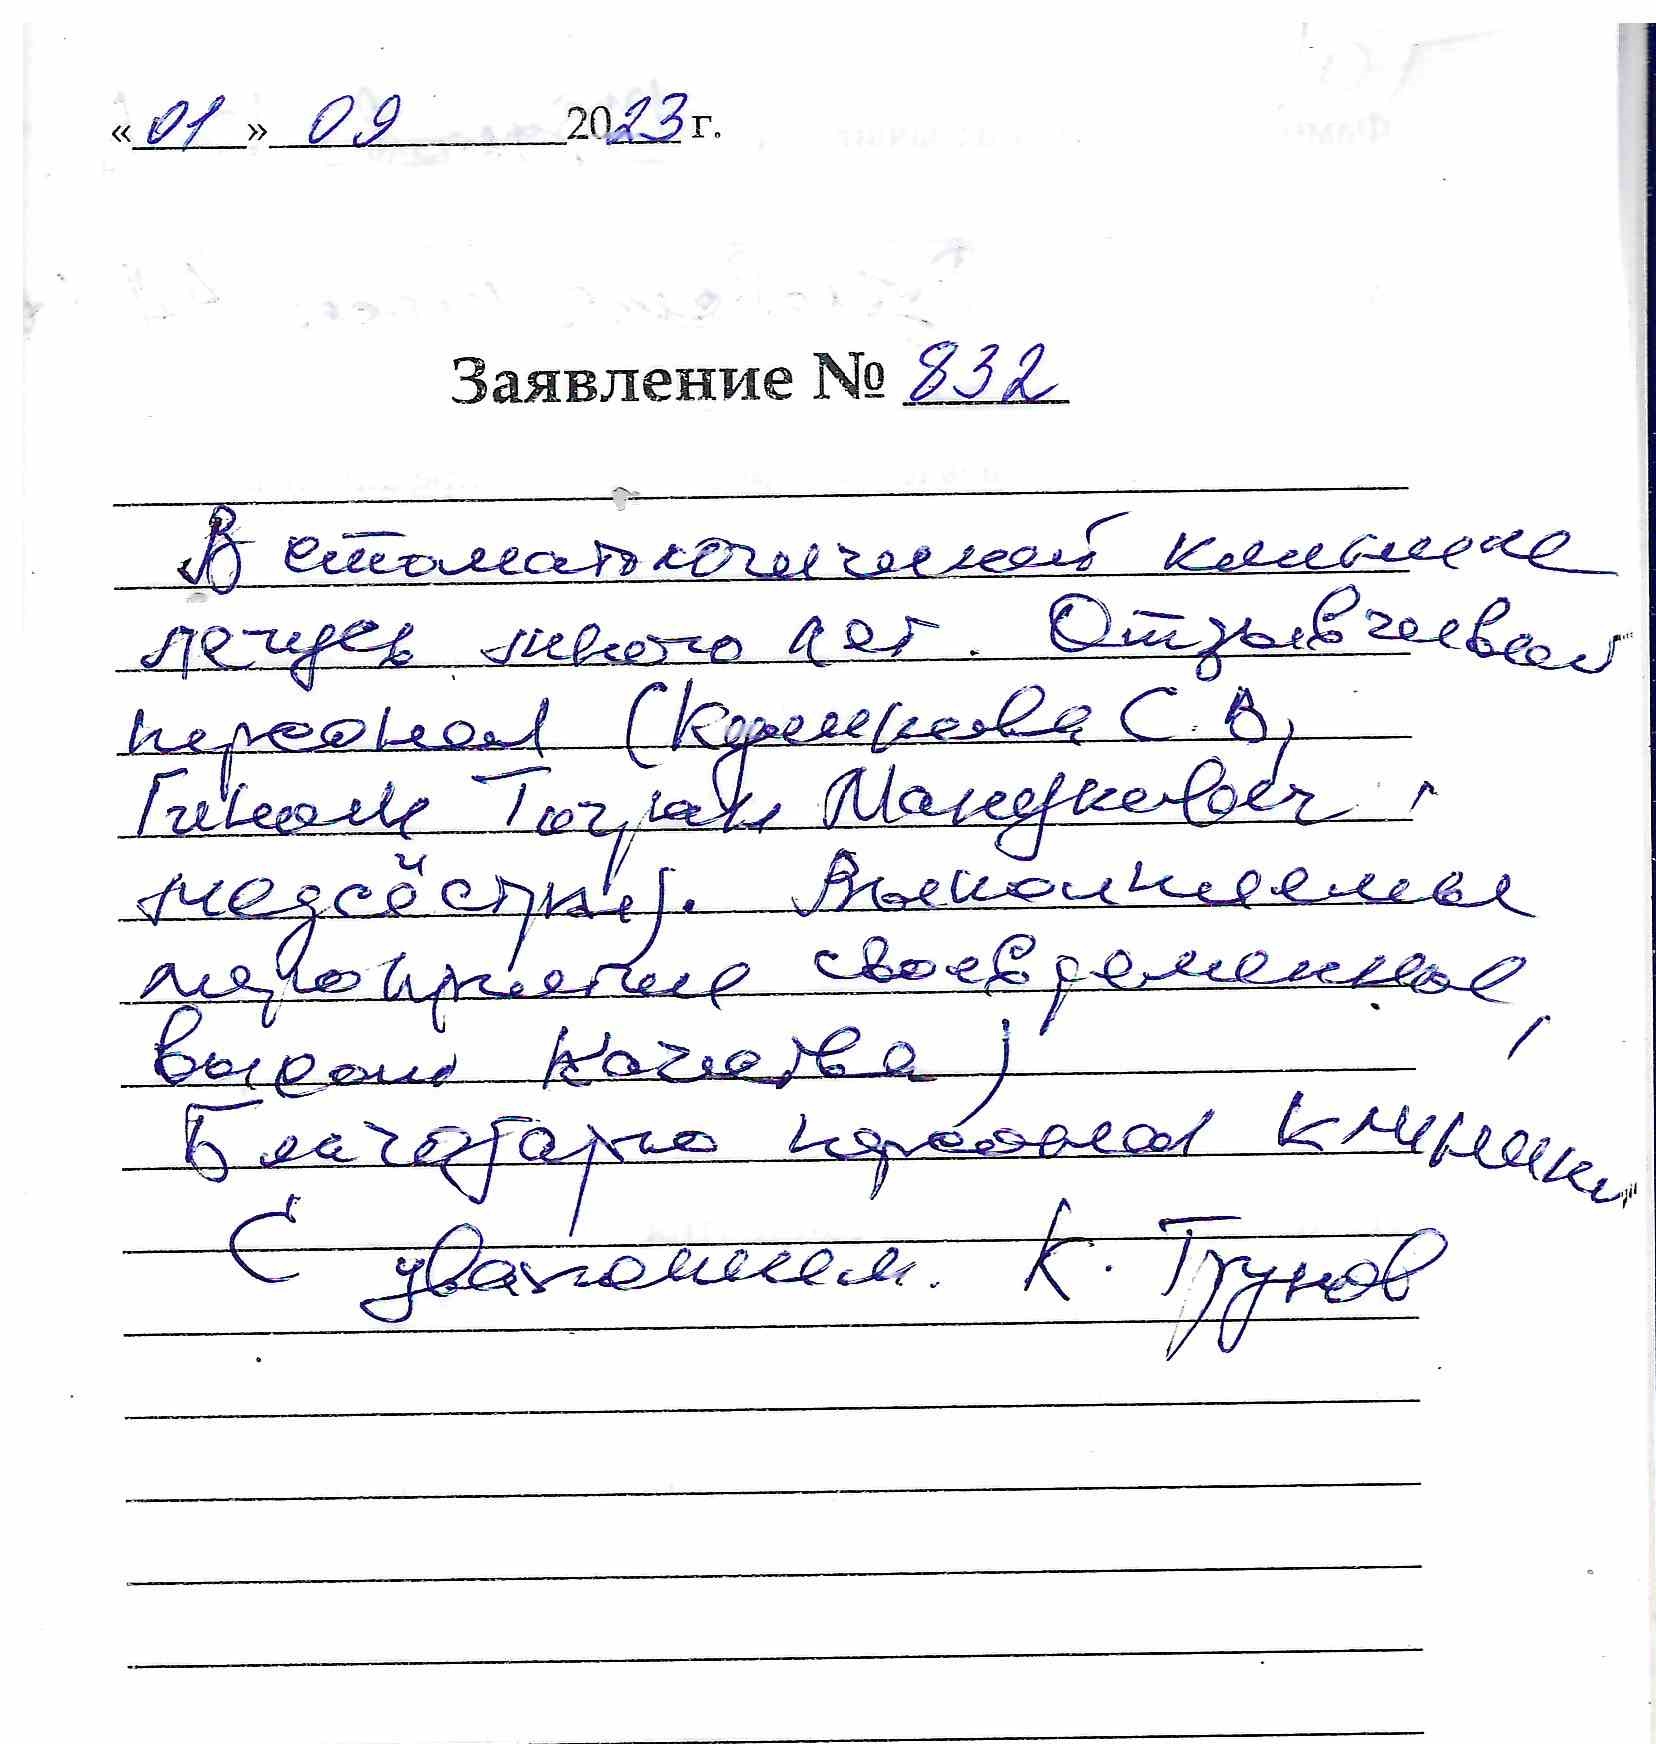 «01» 09 2023 г.
Заявление № 832
В стоматологической клинике
лечусь много лет. Отзывчивый
персонал (С.В,
Тигран
медсёстры). Выполняемые
мероприятия своевременные,
высоко качества)
Благодарю персонал клиники
С уважением. К. Трунов